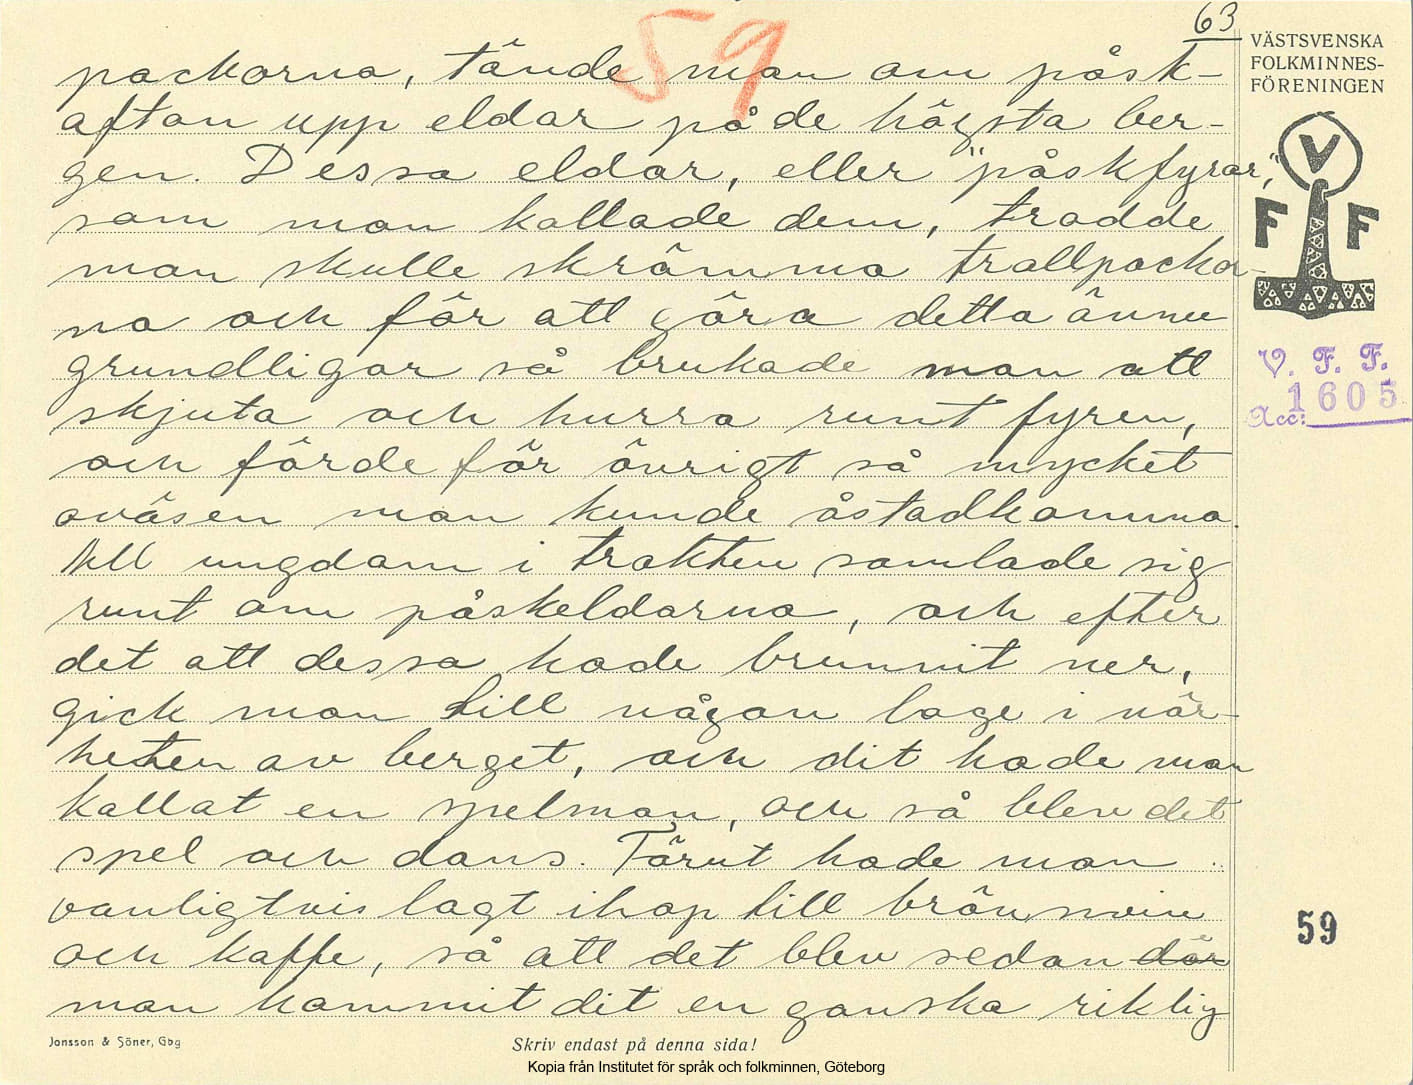 63
59
VÄSTSVENSKA
FOLKMINNES-
FÖRENINGEN
packorna, tände man om påsk-
afton upp eldar på de högsta ber-
gen. Dessa eldar, eller "påskfyrar,"
som man kallade dem, trodde
man skulle skrämma trollpackor-
na och för att göra detta ännu
grundligar så brukade man att
skjuta och hurra runt fyren,
och förde för övrigt så mycket
oväsen man kunde åstadkomma.
All ungdom i trakten samlade sig
runt om påskeldarna, och efter
det att dessa hade brunnit ner,
gick man till någon loge i när-
heten av berget, och dit hade man
kallat en spelman, och så blev det
spel och dans. Förut hade man
vanligtvis lagt ihop till brännvin
och kaffe, så att det blev sedan där
man kommit dit en ganska riklig
V
F F
V. F. F.
Acc: 1605
59
Jonsson & Söner, Gbg
Skriv endast på denna sida!
Kopia från Institutet för språk och folkminnen, Göteborg